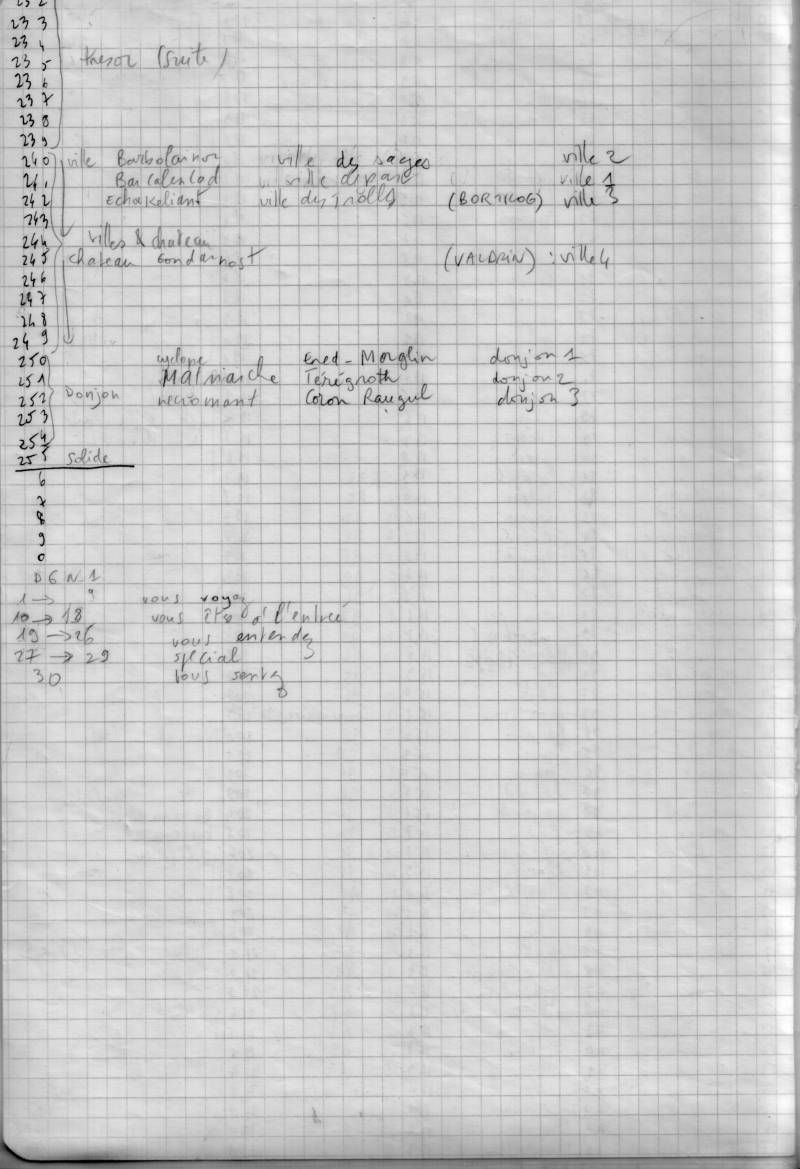 232
233
234
235 trésor (suite)
236
237
238
239
240 ville Barbolannor ville des sages ville 2
241 Barcalenlod ville départ ville 1
242 Echakeliant ville des trolls (BORTICOG) ville 3
243
244 villes & chateau
245 chateau Gondarnost (VALDRIN) : ville 4
246
247
248
249
250 cyclone Ened-Morglin donjon 1
251 Malmarche Térégroth donjon 2
252 Donjon necromant Coron Raugul donjon 3
253
254
255 solide
6
7
8
9
0
DGN1
1 → 9 vous voyez
10 → 18 vous êtes à l'entrée
19 → 26 vous entendez
27 → 29 special
30 vous sentez